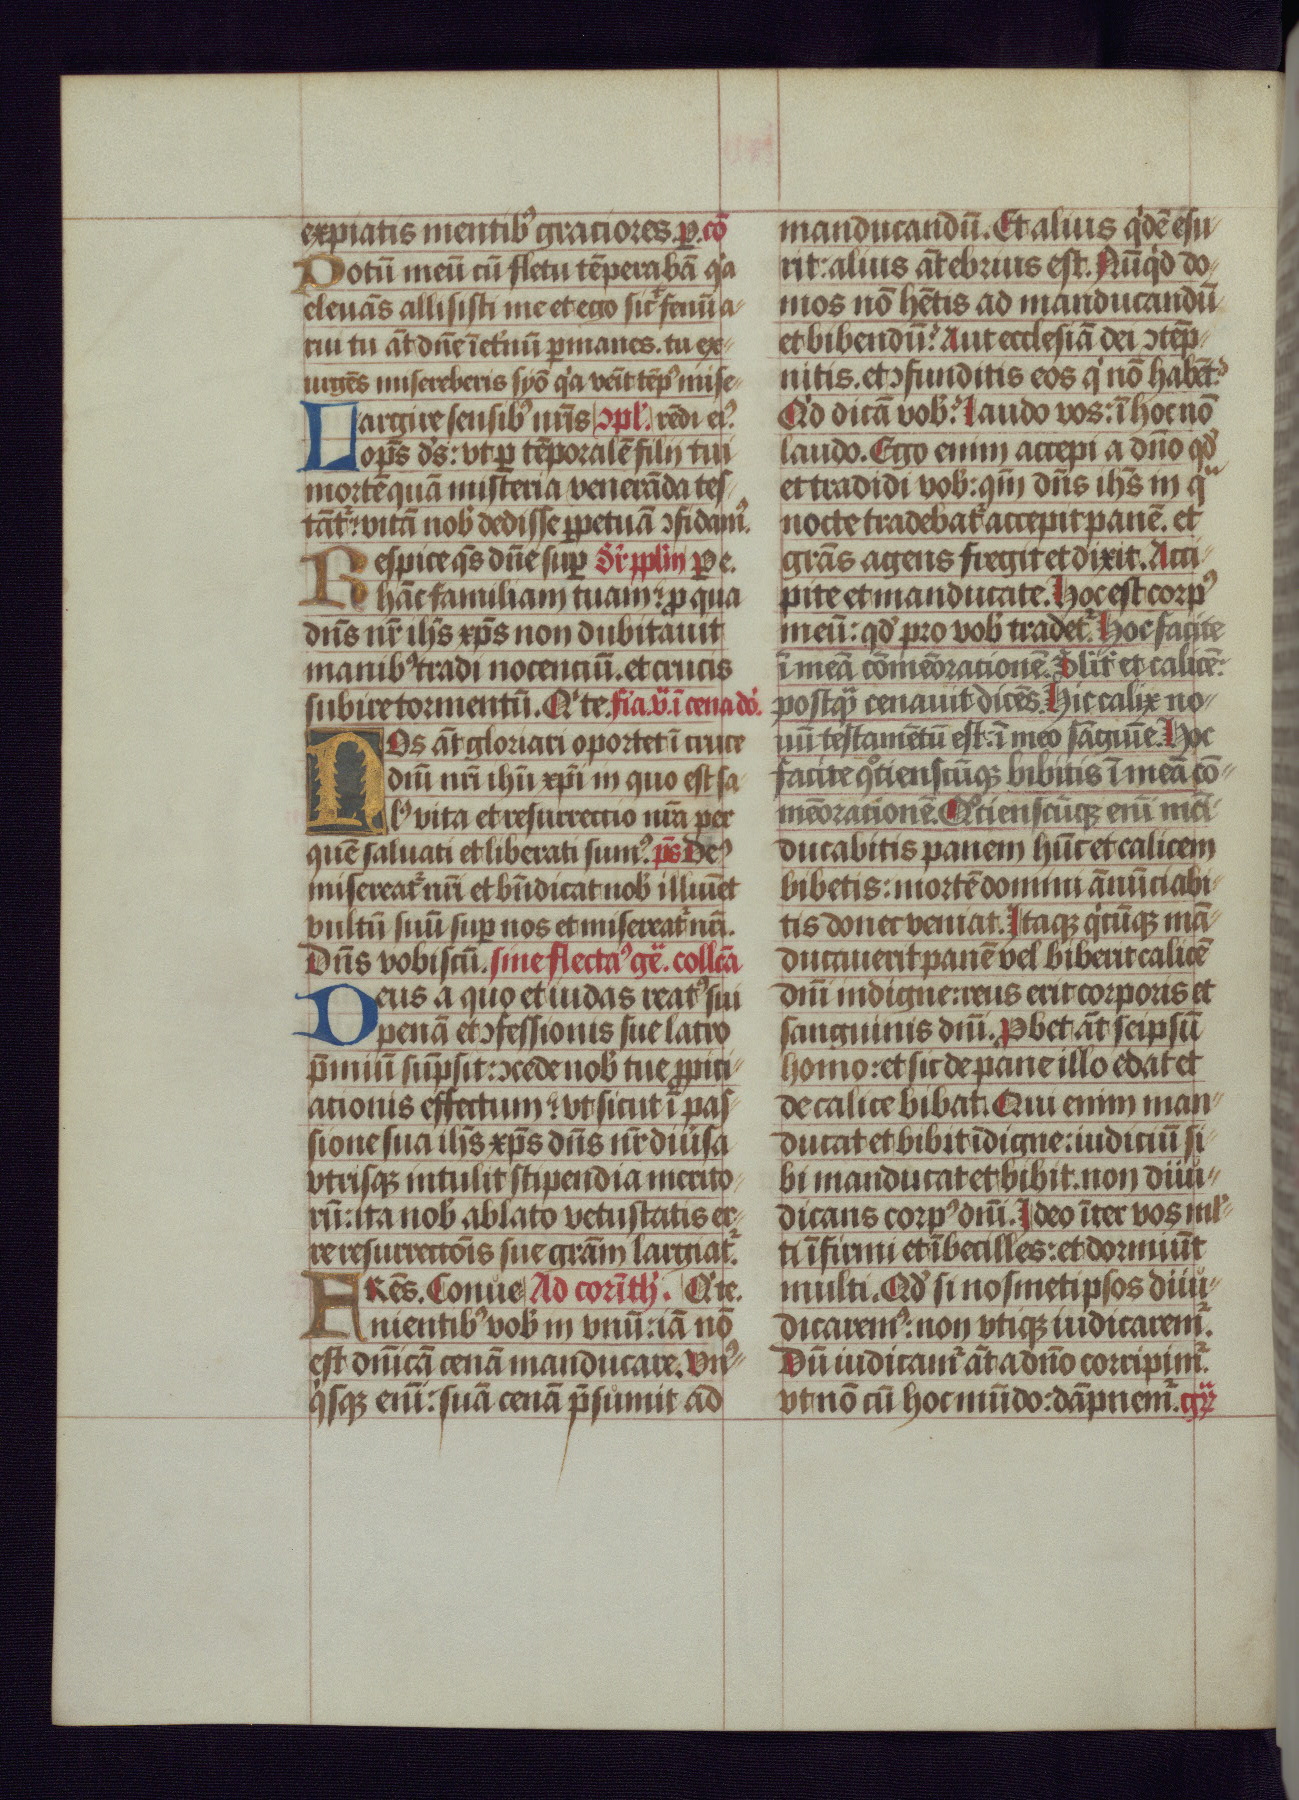 expiatis mentibꝰ graciores. ꝑ. cō
Potū meū cū fletu tēperabā q'a
eleuās allisisti me et ego sic̄ fenū a-
rui tu āt dn̄e īet'nū ꝑmanes. tu ex-
urgēs misereberis syō q'a venīt tēpꝰ mise-
Largire sensibꝰ nr̄is ꝯpl'. redi eiꝰ.
opr̄s ds̄: vt ꝑ tēporalē filij tui
mortē quā misteria venerāda tes-
tāt᷑: vitā nob' dedisse ꝑpetuā ꝯfidamꝰ.
Respice qs̄ dn̄e suꝑ Sr̄ ꝓplm̄ Pe.
hāc familiam tuam: ꝓ qua
dn̄s nr̄ ihs̄ xpr̄s non dubitauit
manibꝰ tradi nocenciū. et crucis
subire tormentū. Q'te. fīa. v̄. ī cena dō.
NOs āt gloriari oportet ī cruce
dn̄i nr̄i ihū xpī in quo est sa-
lꝰ vita et resurrectio nr̄a per
quē saluati et liberati sumꝰ. ps̄ Deꝰ
misereat᷑ nr̄i et bn̄dicat nob' illuīet
vultū suū suꝑ nos et misereat᷑ nr̄i.
Dn̄s vobiscū. sine flectaꝰ gē. collcā
Deus a quo et iudas reatꝰ sui
penā et ꝯfessionis sue latro
p̄miū sūpsit: ꝯcede nob' tue ꝓpici-
ationis effectum: vt sicut ī pas-
sione sua ihs̄ xpr̄s dn̄s nr̄ diu'sa
vtrisqꝫ intulit stipendia merito-
rū: ita nob' ablato vetustatis er-
re resurrectōis sue grām largiat᷑.
FRēs. Conue Ad corīth'. Q'te.
nientibꝰ vob' in vnū: iā nō
est dn̄icā cenā manducare. Vnꝰ-
q'sqꝫ enī: suā cenā p̄sumit ad
manducandū. Et alius q'dē esu-
rit: alius āt ebrius est. Nūq'd do-
mos nō hētis ad manducandū
et bibendū? Aut ecclesiā dei ꝯtēp-
nitis. et ꝯfunditis eos q' nō habēt?
Qd' dicā vob'? Laudo vos: ī hoc nō
laudo. Ego enim accepi a dn̄o qd'
et tradidi vob': qm̄ dn̄s ihs̄ in qͣ
nocte tradebat᷑ accepit panē. et
grās agens fregit et dixit. Acci-
pite et manducate. Hoc est corpꝰ
meū: qd' pro vob' tradet᷑. Hoc facite
ī meā cōmēoracionē. Silīt et calicē:
postqͣ cenauit dicēs. Hic calix no-
uū testamētū est: ī meo sāguīe. Hoc
facite qͦtienscūqꝫ bibitis ī meā cō-
mēorationē. Qͦtienscūqꝫ enī mā-
ducabitis panem hūc et calicem
bibetis: mortē domini ānūciabi-
tis donec veniat. Itaqꝫ q'cūqꝫ mā-
ducauerit panē vel biberit calicē
dn̄i indigne: reus erit corporis et
sanguinis dn̄i. Pbet āt seipsū
homo: et sic de pane illo edat et
de calice bibat. Qui enim man-
ducat et bibit īdigne: iudiciū si-
bi manducat et bibit. non diiu-
dicans corpꝰ dn̄i. Ideo īter vos ml'-
ti īfirmi et ībecilles: et dormiūt
multi. Qd' si nosmetipsos diiu-
dicaremꝰ: non vtiqꝫ iudicarem᷑.
Dū iudicam᷑ āt a dn̄o corripim᷑.
vt nō cū hoc mūdo: dāpnem᷑. gr̄